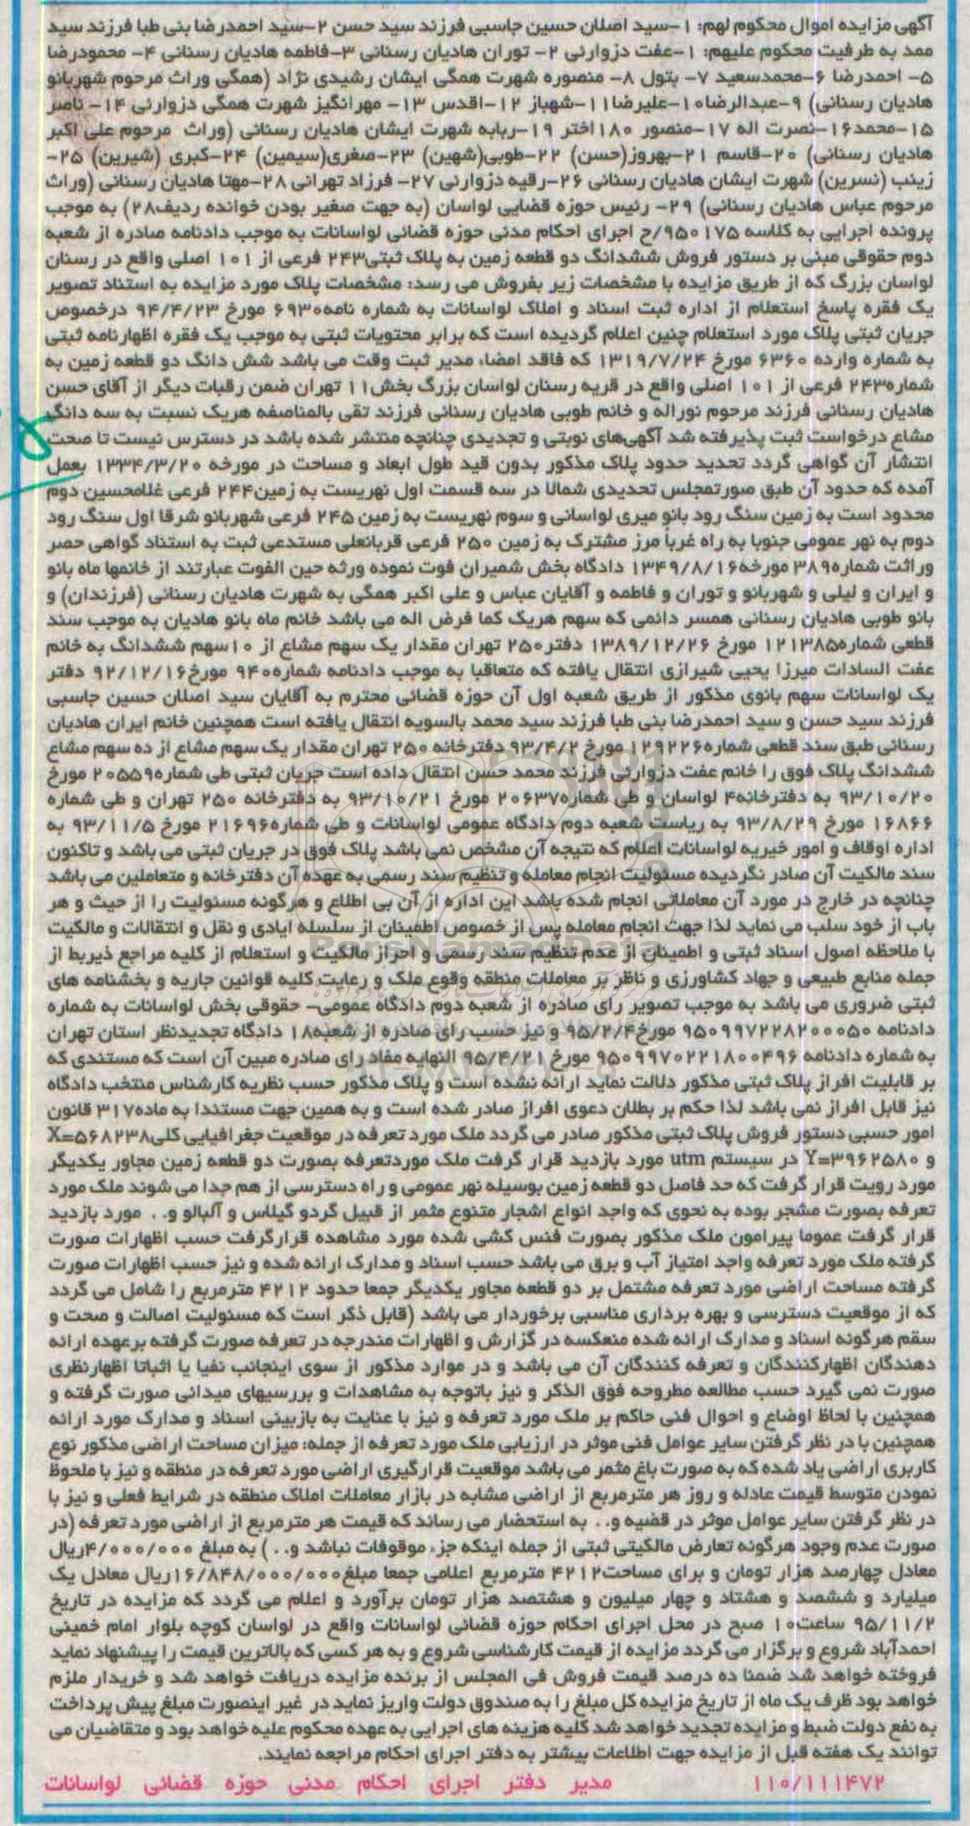 آگهی مزایده اموال محکوم لهم: ۱-سید اصلان حسین جاسبی فرزند سید حسن ۲-سید احمدرضا بنی طبا فرزند سید
ممد به طرفیت محکوم علیهم: ۱-عفت دزوارئی ۲- توران هادیان رسنانی ۳-فاطمه هادیان رسنانی ۴- محمودرضا
۵- احمدرضا ۶-محمدسعید ۷- بتول ۸- منصوره شهرت همگی ایشان رشیدی نژاد (همگی وراث مرحوم شهربانو
هادیان رسنانی) ۹-عبدالرضا۱۰-علیرضا۱۱-شهباز ۱۲-اقدس ۱۳- مهرانگیز شهرت همگی دزوارئی ۱۴- ناصر
۱۵-محمد۱۶-نصرت اله ۱۷-منصور ۱۸۰اختر ۱۹-ربابه شهرت ایشان هادیان رسنانی (وراث مرحوم علی اکبر
هادیان رسنانی) ۲۰-قاسم ۲۱-بهروز(حسن) ۲۲-طوبی(شهین) ۲۳-صغری(سیمین) ۲۴-کبری (شیرین) ۲۵-
زینب (نسرین) شهرت ایشان هادیان رسنانی ۲۶-رقیه دزوارئی ۲۷- فرزاد تهرانی ۲۸-مهتا هادیان رسنانی (وراث
مرحوم عباس هادیان رسنانی) ۲۹- رئیس حوزه قضایی لواسان (به جهت صغیر بودن خوانده ردیف۲۸) به موجب
پرونده اجرایی به کلاسه ۹۵۰۱۷۵/ح اجرای احکام مدنی حوزه قضائی لواسانات به موجب دادنامه صادره از شعبه
دوم حقوقی مبنی بر دستور فروش ششدانگ دو قطعه زمین به پلاک ثبتی۲۴۳ فرعی از ۱۰۱ اصلی واقع در رسنان
لواسان بزرگ که از طریق مزایده با مشخصات زیر بفروش می رسد: مشخصات پلاک مورد مزایده به استناد تصویر
یک فقره پاسخ استعلام از اداره ثبت اسناد و املاک لواسانات به شماره نامه۶۹۳۰ مورخ ۹۴/۴/۲۳ درخصوص
جریان ثبتی پلاک مورد استعلام چنین اعلام گردیده است که برابر محتویات ثبتی به موجب یک فقره اظهارنامه ثبتی
به شماره وارده ۶۳۶۰ مورخ ۱۳۱۹/۷/۲۴ که فاقد امضاء مدیر ثبت وقت می باشد شش دانگ دو قطعه زمین به
شماره۲۴۳ فرعی از ۱۰۱ اصلی واقع در قریه رسنان لواسان بزرگ بخش۱۱ تهران ضمن رقبات دیگر از آقای حسن
هادیان رسنانی فرزند مرحوم نوراله و خانم طوبی هادیان رسنانی فرزند تقی بالمناصفه هریک نسبت به سه دانگ
مشاع درخواست ثبت پذیرفته شد آگهی‌های نوبتی و تجدیدی چنانچه منتشر شده باشد در دسترس نیست تا صحت
انتشار آن گواهی گردد تحدید حدود پلاک مذکور بدون قید طول ابعاد و مساحت در مورخه ۱۳۳۴/۳/۲۰ بعمل
آمده که حدود آن طبق صورتمجلس تحدیدی شمالا در سه قسمت اول نهریست به زمین۲۴۴ فرعی غلامحسین دوم
محدود است به زمین سنگ رود بانو میری لواسانی و سوم نهریست به زمین ۲۴۵ فرعی شهربانو شرقا اول سنگ رود
دوم به نهر عمومی جنوبا به راه غرباً مرز مشترک به زمین ۲۵۰ فرعی قربانعلی مستدعی ثبت به استناد گواهی حصر
وراثت شماره۳۸۹ مورخه۱۳۴۹/۸/۱۶ دادگاه بخش شمیران فوت نموده ورثه حین الفوت عبارتند از خانمها ماه بانو
و ایران و لیلی و شهربانو و توران و فاطمه و آقایان عباس و علی اکبر همگی به شهرت هادیان رسنانی (فرزندان) و
بانو طوبی هادیان رسنانی همسر دائمی که سهم هریک کما فرض اله می باشد خانم ماه بانو هادیان به موجب سند
قطعی شماره۱۲۱۳۸۵ مورخ ۱۳۸۹/۱۲/۲۶ دفتر۲۵۰ تهران مقدار یک سهم مشاع از ۱۰سهم ششدانگ به خانم
عفت السادات میرزا یحیی شیرازی انتقال یافته که متعاقبا به موجب دادنامه شماره۹۴۰ مورخ۹۲/۱۲/۱۶ دفتر
یک لواسانات سهم بانوی مذکور از طریق شعبه اول آن حوزه قضائی محترم به آقایان سید اصلان حسین جاسبی
فرزند سید حسن و سید احمدرضا بنی طبا فرزند سید محمد بالسویه انتقال یافته است همچنین خانم ایران هادیان
رسنانی طبق سند قطعی شماره۱۲۹۲۲۶ مورخ ۹۳/۴/۲ دفترخانه ۲۵۰ تهران مقدار یک سهم مشاع از ده سهم مشاع
ششدانگ پلاک فوق را خانم عفت دزوارئی فرزند محمد حسن انتقال داده است جریان ثبتی طی شماره۲۰۵۵۹ مورخ
۹۳/۱۰/۲۰ به دفترخانه۴ لواسان و طی شماره۲۰۶۳۷ مورخ ۹۳/۱۰/۲۱ به دفترخانه ۲۵۰ تهران و طی شماره
۱۶۸۶۶ مورخ ۹۳/۸/۲۹ به ریاست شعبه دوم دادگاه عمومی لواسانات و طی شماره۲۱۶۹۶ مورخ ۹۳/۱۱/۵ به
اداره اوقاف و امور خیریه لواسانات اعلام که نتیجه آن مشخص نمی باشد پلاک فوق در جریان ثبتی می باشد و تاکنون
سند مالکیت آن صادر نگردیده مسئولیت انجام معامله و تنظیم سند رسمی به عهده آن دفترخانه و متعاملین می باشد
چنانچه در خارج در مورد آن معاملاتی انجام شده باشد این اداره از آن بی اطلاع و هرگونه مسئولیت را از حیث و هر
باب از خود سلب می نماید لذا جهت انجام معامله پس از خصوص اطمینان از سلسله ایادی و نقل و انتقالات و مالکیت
با ملاحظه اصول اسناد ثبتی و اطمینان از عدم تنظیم سند رسمی و احراز مالکیت و استعلام از کلیه مراجع ذیربط از
جمله منابع طبیعی و جهاد کشاورزی و ناظر بر معاملات منطقه وقوع ملک و رعایت کلیه قوانین جاریه و بخشنامه های
ثبتی ضروری می باشد به موجب تصویر رای صادره از شعبه دوم دادگاه عمومی- حقوقی بخش لواسانات به شماره
دادنامه ۹۵۰۹۹۷۲۲۸۲۰۰۰۵۰ مورخ۹۵/۲/۴ و نیز حسب رای صادره از شعبه۱۸ دادگاه تجدیدنظر استان تهران
به شماره دادنامه ۹۵۰۹۹۷۰۲۲۱۸۰۰۴۹۶ مورخ ۹۵/۴/۲۱ النهایه مفاد رای صادره مبین آن است که مستندی که
بر قابلیت افراز پلاک ثبتی مذکور دلالت نماید ارائه نشده است و پلاک مذکور حسب نظریه کارشناس منتخب دادگاه
نیز قابل افراز نمی باشد لذا حکم بر بطلان دعوی افراز صادر شده است و به همین جهت مستندا به ماده۳۱۷ قانون
امور حسبی دستور فروش پلاک ثبتی مذکور صادر می گردد ملک مورد تعرفه در موقعیت جغرافیایی کلیX=۵۶۸۲۳۸
و Y=۳۹۶۲۵۸۰ در سیستم utm مورد بازدید قرار گرفت ملک موردتعرفه بصورت دو قطعه زمین مجاور یکدیگر
مورد رویت قرار گرفت که حد فاصل دو قطعه زمین بوسیله نهر عمومی و راه دسترسی از هم جدا می شوند ملک مورد
تعرفه بصورت مشجر بوده به نحوی که واجد انواع اشجار متنوع مثمر از قبیل گردو گیلاس و آلبالو و. . مورد بازدید
قرار گرفت عموما پیرامون ملک مذکور بصورت فنس کشی شده مورد مشاهده قرارگرفت حسب اظهارات صورت
گرفته ملک مورد تعرفه واجد امتیاز آب و برق می باشد حسب اسناد و مدارک ارائه شده و نیز حسب اظهارات صورت
گرفته مساحت اراضی مورد تعرفه مشتمل بر دو قطعه مجاور یکدیگر جمعا حدود ۴۲۱۲ مترمربع را شامل می گردد
که از موقعیت دسترسی و بهره برداری مناسبی برخوردار می باشد (قابل ذکر است که مسئولیت اصالت و صحت و
سقم هرگونه اسناد و مدارک ارائه شده منعکسه در گزارش و اظهارات مندرجه در تعرفه صورت گرفته برعهده ارائه
دهندگان اظهارکنندگان و تعرفه کنندگان آن می باشد و در موارد مذکور از سوی اینجانب نفیا یا اثباتا اظهارنظری
صورت نمی گیرد حسب مطالعه مطروحه فوق الذکر و نیز باتوجه به مشاهدات و بررسیهای میدانی صورت گرفته و
همچنین با لحاظ اوضاع و احوال فنی حاکم بر ملک مورد تعرفه و نیز با عنایت به بازبینی اسناد و مدارک مورد ارائه
همچنین با در نظر گرفتن سایر عوامل فنی موثر در ارزیابی ملک مورد تعرفه از جمله: میزان مساحت اراضی مذکور نوع
کاربری اراضی یاد شده که به صورت باغ مثمر می باشد موقعیت قرارگیری اراضی مورد تعرفه در منطقه و نیز با ملحوظ
نمودن متوسط قیمت عادله و روز هر مترمربع از اراضی مشابه در بازار معاملات املاک منطقه در شرایط فعلی و نیز با
در نظر گرفتن سایر عوامل موثر در قضیه و. . به استحضار می رساند که قیمت هر مترمربع از اراضی مورد تعرفه (در
صورت عدم وجود هرگونه تعارض مالکیتی ثبتی از جمله اینکه جزء موقوفات نباشد و. . ) به مبلغ ۴/۰۰۰/۰۰۰ریال
معادل چهارصد هزار تومان و برای مساحت۴۲۱۲ مترمربع اعلامی جمعا مبلغ۱۶/۸۴۸/۰۰۰/۰۰۰ریال معادل یک
میلیارد و ششصد و هشتاد و چهار میلیون و هشتصد هزار تومان برآورد و اعلام می گردد که مزایده در تاریخ
۹۵/۱۱/۲ ساعت۱۰ صبح در محل اجرای احکام حوزه قضائی لواسانات واقع در لواسان کوچه بلوار امام خمینی
احمدآباد شروع و برگزار می گردد مزایده از قیمت کارشناسی شروع و به هر کسی که بالاترین قیمت را پیشنهاد نماید
فروخته خواهد شد ضمنا ده درصد قیمت فروش فی المجلس از برنده مزایده دریافت خواهد شد و خریدار ملزم
خواهد بود ظرف یک ماه از تاریخ مزایده کل مبلغ را به صندوق دولت واریز نماید در غیر اینصورت مبلغ پیش پرداخت
به نفع دولت ضبط و مزایده تجدید خواهد شد کلیه هزینه های اجرایی به عهده محکوم علیه خواهد بود و متقاضیان می
توانند یک هفته قبل از مزایده جهت اطلاعات بیشتر به دفتر اجرای احکام مراجعه نمایند.
۱۱۰/۱۱۱۴۷۲ مدیر دفتر اجرای احکام مدنی حوزه قضائی لواسانات
ParsNamadData